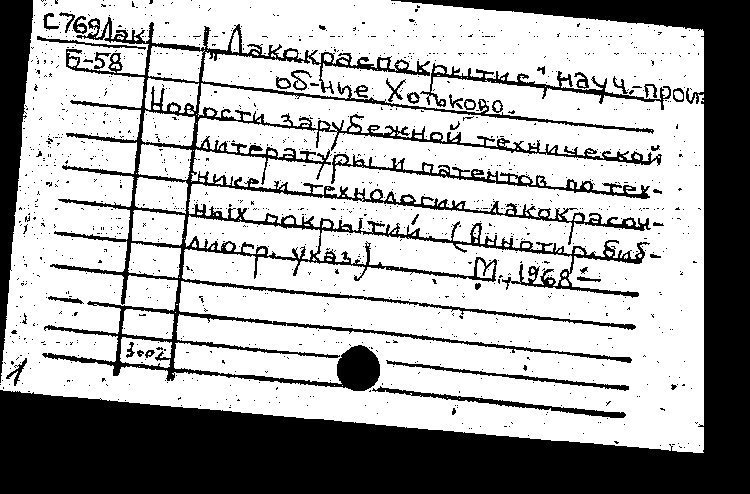 С769Лак
Б-58
"Лакокраспокрытие", науч.-произ
об-ние. Хотьково.
Новости зарубежной технической
литературы и патентов по тех-
нике и технологии лакокрасоч-
ных покрытий. (Аннотир. биб-
лиогр. указ.). М., 1968-
3.02
1